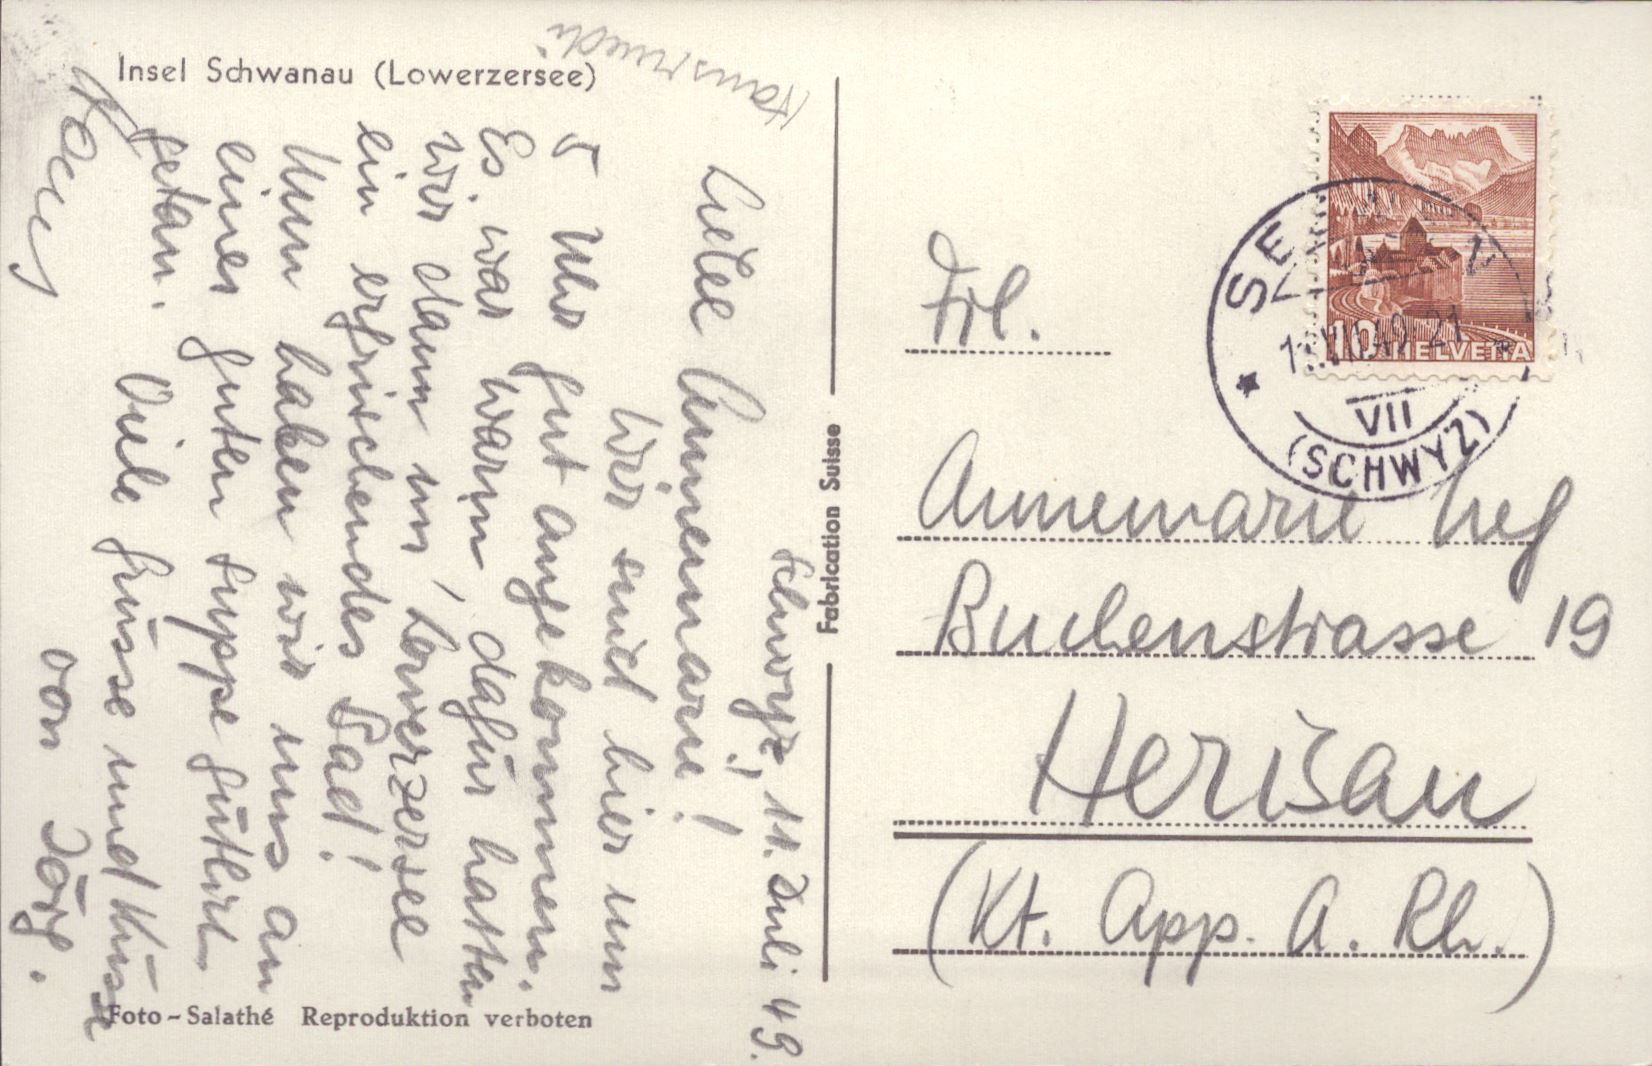 Insel Schwanau (Lowerzersee)
Schwyz, 11. Juli 49.
Liebe Annemarie!
Wir sind hier um
5 Uhr gut angekommen.
Es war warm, dafür hatten
wir dann im Lowerzersee
ein erfrischendes Bad!
Nun haben wir uns an
einer guten Suppe gütlich
getan.
Viele Grüsse und Küsse
von Jörg.
Hansruedi
Foto-Salathé Reproduktion verboten
Fabrication Suisse
Frl.
Annemarie Nef
Buchenstrasse 19
Herisau
(Kt. App. A. Rh.)
10 HELVETIA
VII
(SCHWYZ)